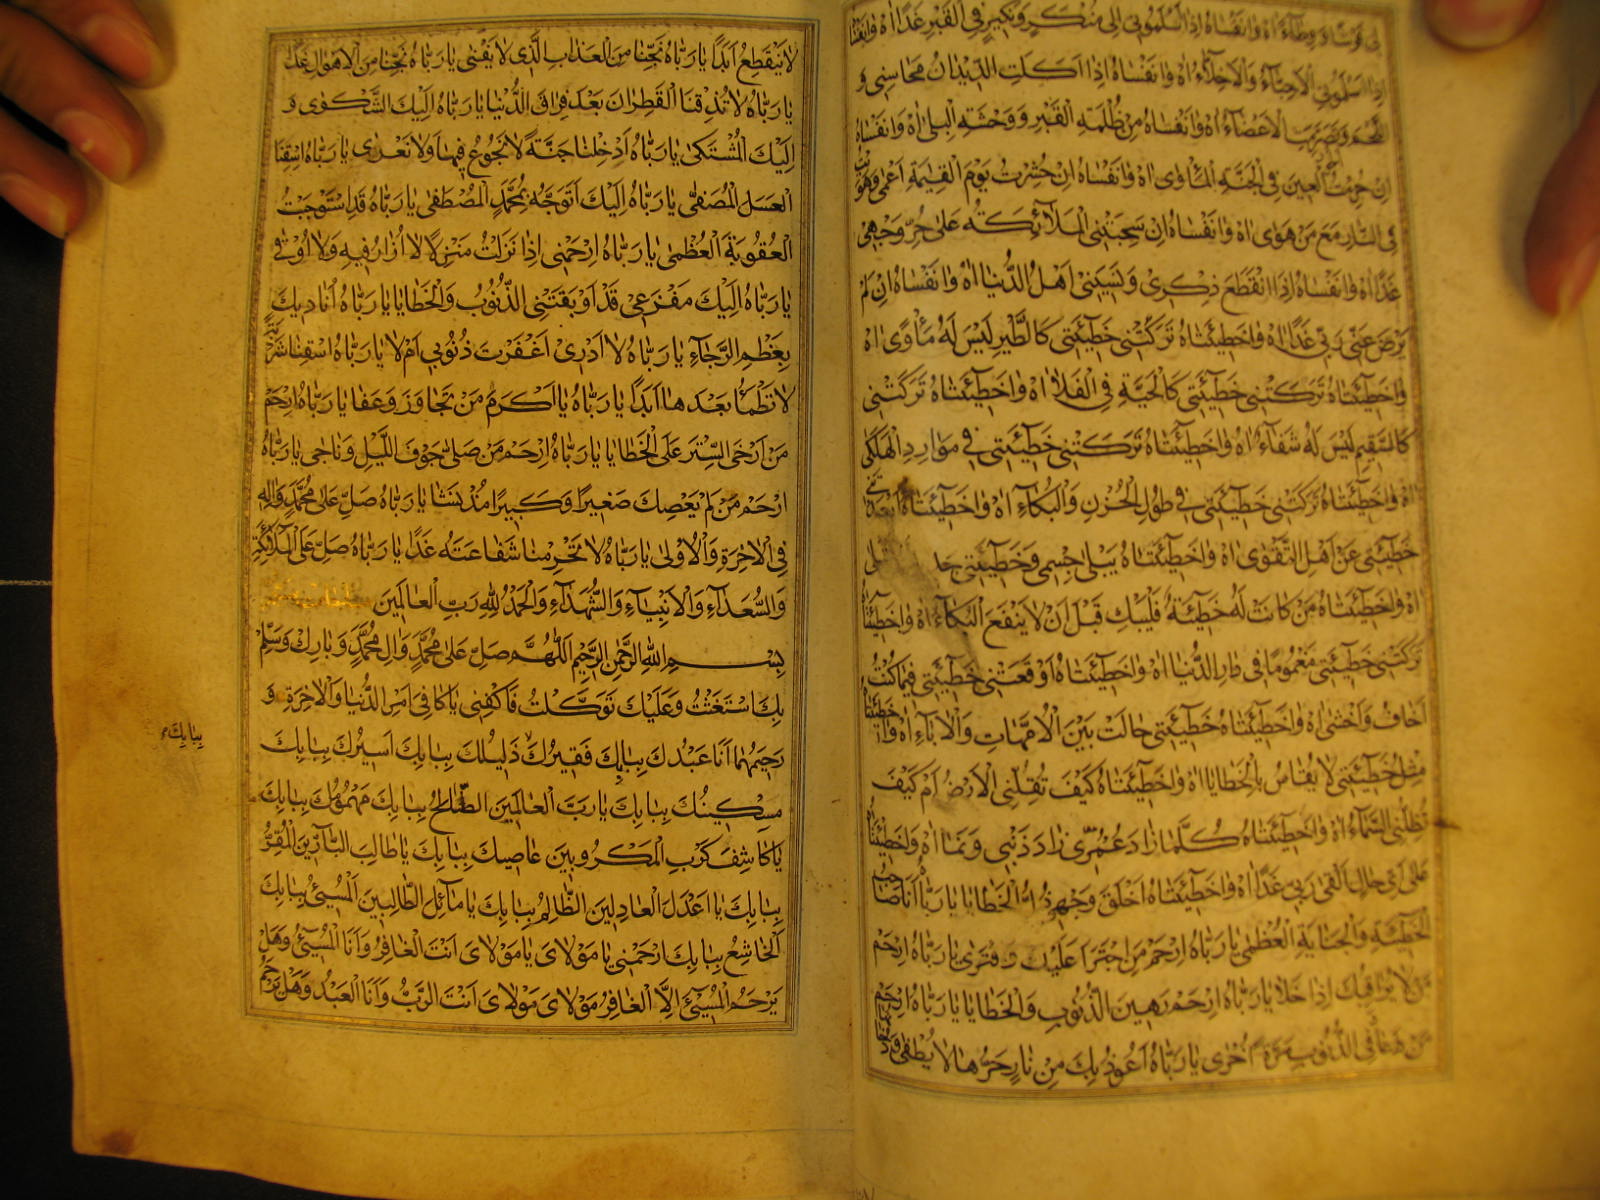 بي فرشا و وطاءً آه وانفساه اذا اسلموني الى منكر ونكير في القبر غدًا آه وانفساه
اذا اسلموني الاحباء والاخلاء آه وانفساه اذا اكلت الديدان محاسني و
آه وانفساه من ظلمة القبر ووحشة البلى آه وانفساه
ان حرمت العين في الجنة المأوى آه وانفساه ان حشرت يوم القيمة اعمى وهو
في النار مع من هوى آه وانفساه ان سحبتني الملائكة على حر وجهي
غدًا آه وانفساه اذا انقطع ذكرى ونسيني اهل الدنيا آه وانفساه ان لم
يرض عني ربي غدًا آه واخطيئتاه تركتني خطيئتي كالطير ليس له مأوًى آه
واخطيئتاه تركتني خطيئتي كالحية في الفلا آه واخطيئتاه تركتني
كالسقيم ليس له شفاء آه واخطيئتاه تركتني خطيئتي في موارد الهلكى
آه واخطيئتاه تركتني خطيئتي في طول الحزن والبكاء آه واخطيئتاه ابعدتني
خطيئتي عن اهل التقوى آه واخطيئتاه يبلى جسمي وخطيئتي
آه واخطيئتاه من كانت له خطيئة فليبك قبل ان لا ينفع البكاء آه واخطيئتاه
تركتني خطيئتي مغمومًا في دار الدنيا آه واخطيئتاه اوقعتني خطيئتي فيما كنت
اخاف واخشى آه واخطيئتاه خطيئتي حالت بين الامهات والآباء آه واخطيئتاه
مثل خطيئتي لا يقاس بالخطايا آه واخطيئتاه كيف تقلني الارض ام كيف
تظلني السماء آه واخطيئتاه كلما زاد عمرى زاد ذنبي ونما آه واخطيئتاه
على اى حال القى ربي غدًا آه واخطيئتاه اخلق وجهى الخطايا يا رباه انا صاحب
الخطيئة والجناية العظمى يا رباه ارحم من اجترأ عليك وافترى يا رباه ارحم
من لا يراقبك اذا خلا يا رباه ارحم رهين الذنوب والخطايا يا رباه ارحم
من الذنوب مرة اخرى يا رباه اعوذ بك من نار حرها لا يطفى
لا ينقطع ابدًا يا رباه نجنا من العذاب الذى لا يفنى يا رباه نجنا من الاهوال غدًا
يا رباه لا تذقنا القطران بعد فراق الدنيا يا رباه اليك الشكوى و
اليك المشتكى يا رباه ادخلنا جنةً لا نجوع فيها ولا نعرى يا رباه اسقنا
العسل المصفى يا رباه اليك اتوجه بمحمد المصطفى يا رباه قد استوجبت
العقوبة العظمى يا رباه ارحمني اذا نزلت منزلًا لا ازار فيه ولا اوتى
يا رباه اليك مفزعي قد اوبقتني الذنوب والخطايا يا رباه اناديك
بعظم الرجاء يا رباه لا ادرى اغفرت ذنوبي ام لا يا رباه اسقنا شربةً
لا نظمأ بعدها ابدًا يا رباه يا اكرم من تجاوز وعفا يا رباه ارحم
من ارخى الستر على الخطايا يا رباه ارحم من صلى جوف الليل وناجى يا رباه
ارحم من لم يعصك صغيرًا وكبيرًا منذ نشا يا رباه صل على محمد وآله
في الآخرة والاولى يا رباه لا تحرمنا شفاعته غدًا يا رباه صل على الملائكة
والسعداء والانبياء والشهداء والحمد لله رب العالمين
بسم الله الرحمن الرحيم اللهم صل على محمد وال محمد وبارك وسلم
بك استغثت وعليك توكلت فاكفني يا كافي امر الدنيا والآخرة و
رحيمهما انا عبدك ببابك فقيرك ذليلك ببابك اسيرك ببابك
مسكينك ببابك يا رب العالمين الطالح ببابك مهمومك ببابك
يا كاشف كرب المكروبين عاصيك ببابك يا طالب البارين المقر
ببابك يا اعدل العادلين الظالم ببابك يا مآئل الطالبين المسيئ ببابك
الخاشع ببابك ارحمني يا مولاى يا مولاى انت الغافر وانا المسيئ وهل
يرحم المسيئ الا الغافر مولاى مولاى انت الرب وانا العبد وهل يرحم
ببابك